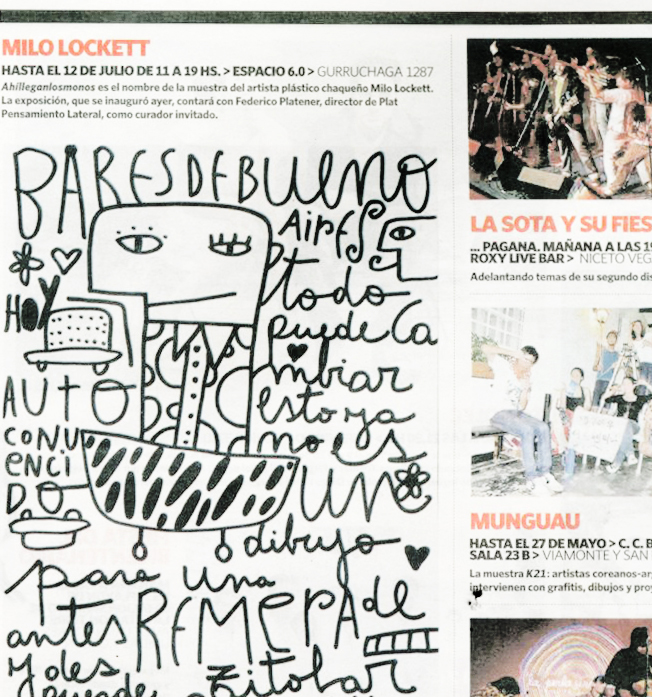 MILO LOCKETT
HASTA EL 12 DE JULIO DE 11 A 19 HS. > ESPACIO 6.0 > GURRUCHAGA 1287
Ahilleganlosmonos es el nombre de la muestra del artista plástico chaqueño Milo Lockett.
La exposición, que se inauguró ayer, contará con Federico Platener, director de Plat
Pensamiento Lateral, como curador invitado.
BARES DE BUENO
AiRES
todo
HOY
puede Ca
mbiar
AUTO
esto ya
CONV
no es
ENCI
UN
DO
dibujo
para una
REMERA de
antes
y des
Zitobar
puede
LA SOTA Y SU FIES
... PAGANA. MAÑANA A LAS 19
ROXY LIVE BAR > NICETO VEG
Adelantando temas de su segundo dis
MUNGUAU
HASTA EL 27 DE MAYO > C. C. B
SALA 23 B > VIAMONTE Y SAN
La muestra K21: artistas coreanos-ar
intervienen con grafitis, dibujos y proy